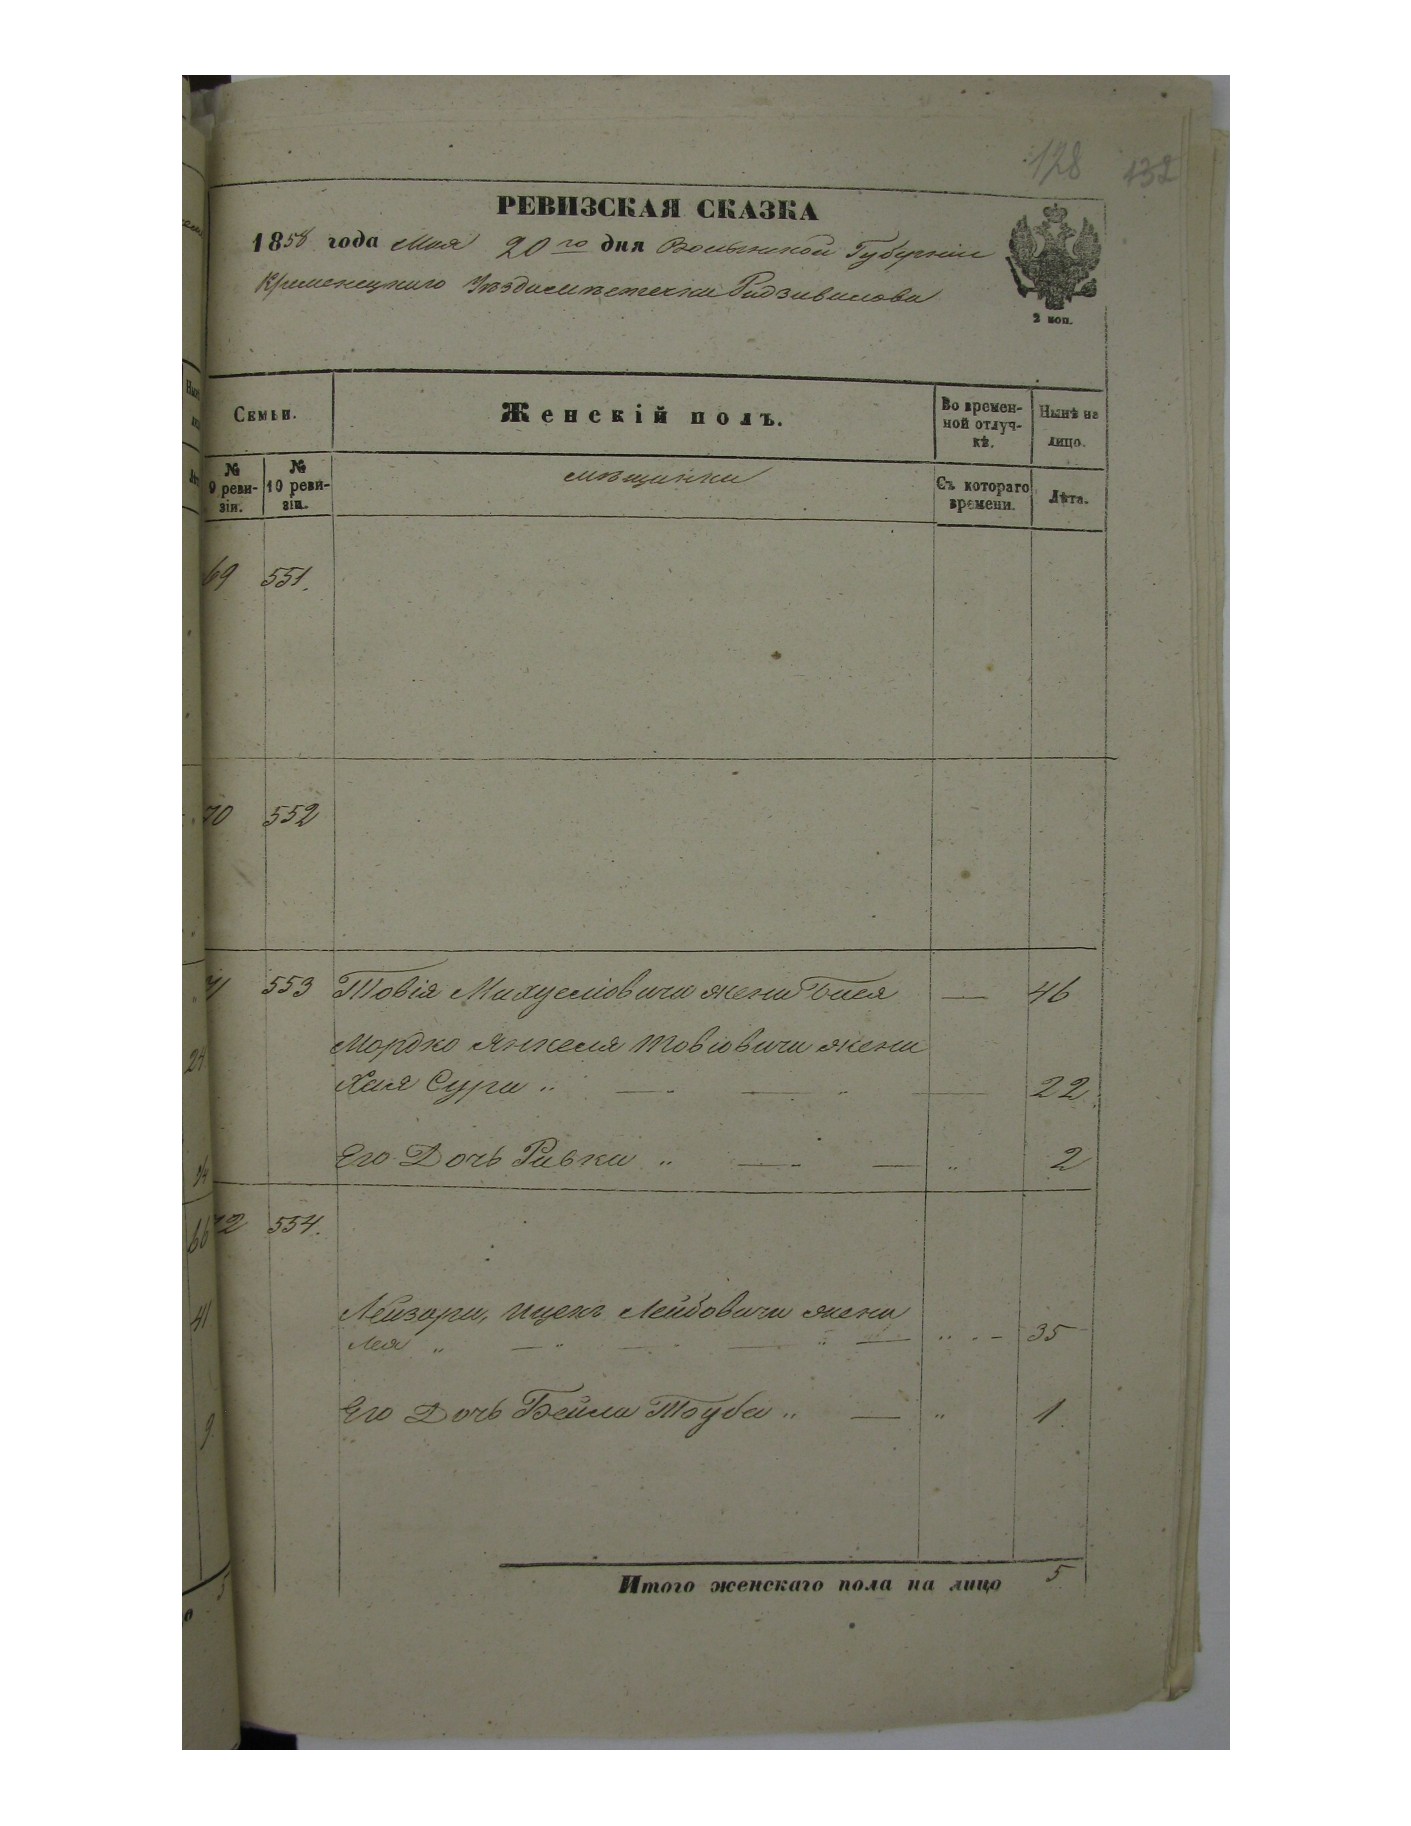 128 132
РЕВИЗСКАЯ СКАЗКА
1858 года Мая 20го дня Волынской Губерніи
Кременецкаго Уѣзда мѣстечка Радзивилова
2 коп.
Семьи.
Женскій полъ.
Во времен-
ной отлуч-
кѣ.
Нынѣ на
лицо.
№
9 реви-
зіи.
№
10 реви-
зіи.
мѣщанки
Съ котораго
времени.
Лѣта.
69 551.
70 552
71 553 Товія Михуеліовича жена Бася — 46
Мордко Янкеля Товіовича жена
Хая Сура „ — — „ — 22
Его Дочь Ривка „ — — „ 2
72 554.
Лейзора, Ицекъ Лейбовича жена
Лея „ — „ — — „ — „ — 35
Его Дочь Бейла Тауба „ — „ 1
Итого женскаго пола на лицо 5